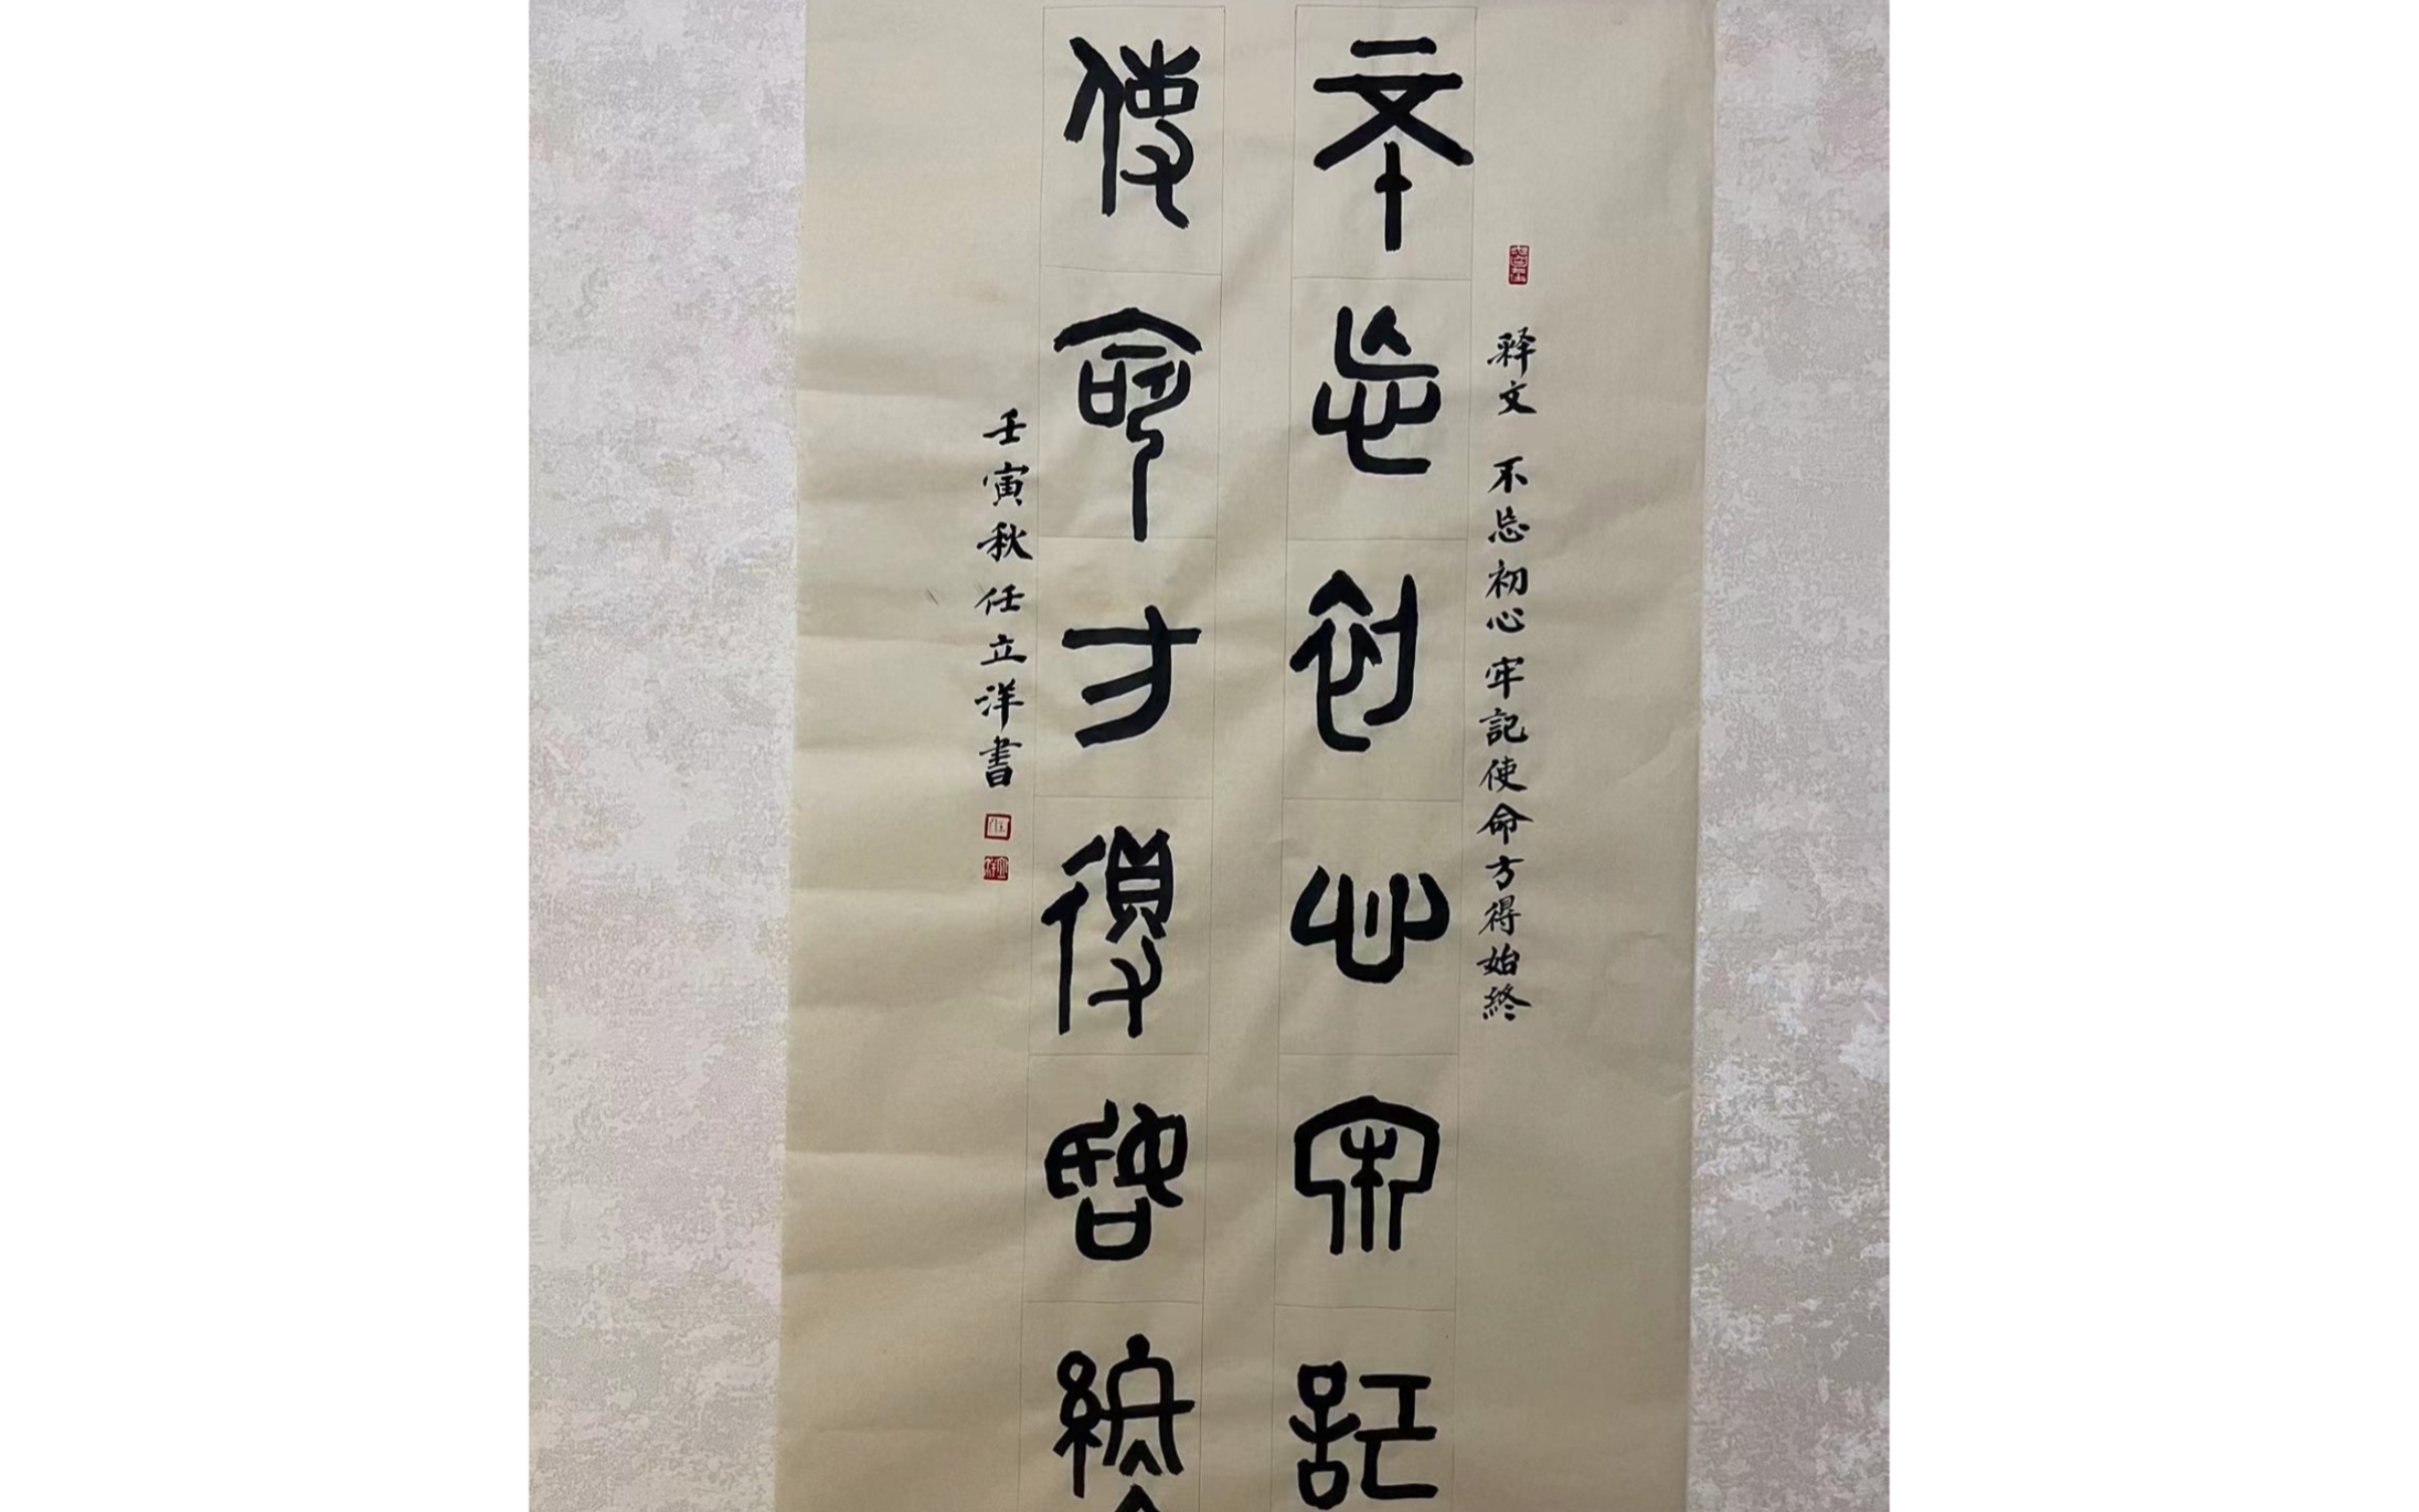 释文 不忘初心牢記使命方得始終
不忘初心牢記
使命方得始終
壬寅秋任立洋書